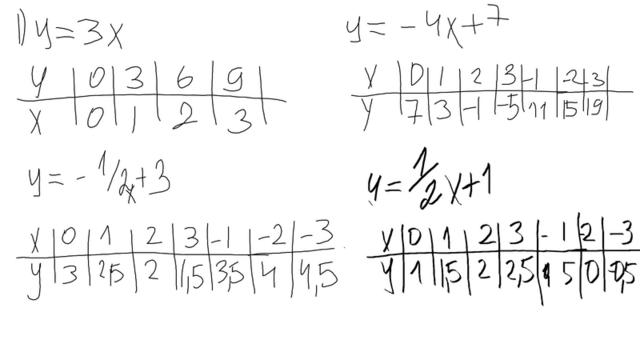 1) y=3x
y | 0 | 3 | 6 | 9 |
x | 0 | 1 | 2 | 3
y=-4x+7
x | 0 | 1 | 2 | 3 | -1 | -2 | -3
y | 7 | 3 | -1 | -5 | 11 | 15 | 19 |
y=-1/2x+3
x | 0 | 1 | 2 | 3 | -1 | -2 | -3
y | 3 | 2,5 | 2 | 1,5 | 3,5 | 4 | 4,5
y=1/2x+1
x | 0 | 1 | 2 | 3 | -1 | -2 | -3
y | 1 | 1,5 | 2 | 2,5 | 5 | 0 | -0,5